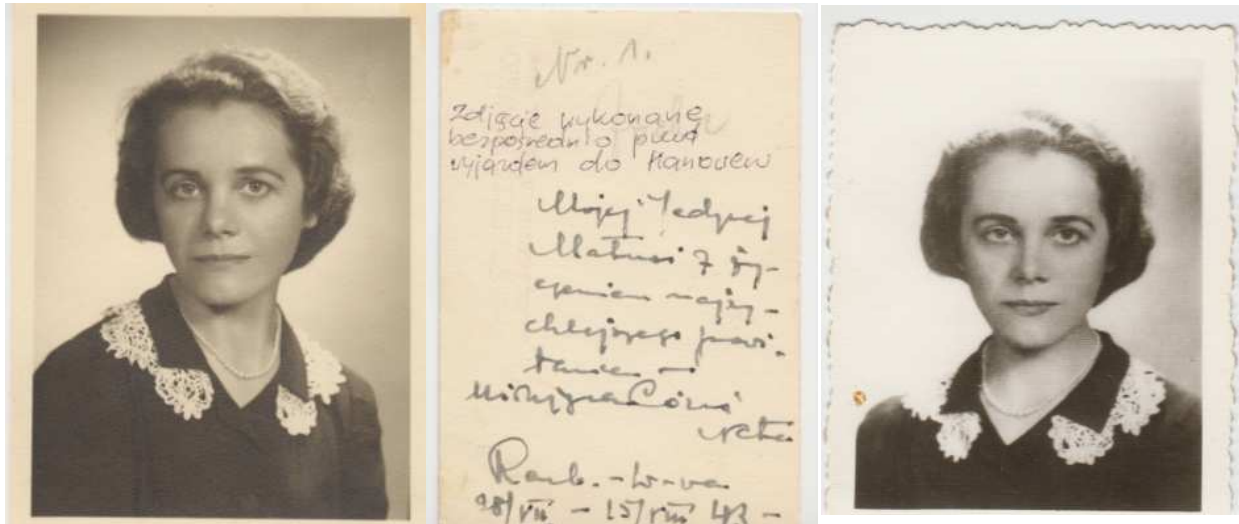 Nr. 1.
Zdjęcie wykonane
bezpośrednio przed
wyjazdem do Hanoweru
Mojej Jedynej
Matusi z ży-
czeniem najry-
chlejszego powi-
tania —
Córuś
Rab. - W-wa
28/VII - 15/VIII 43 -